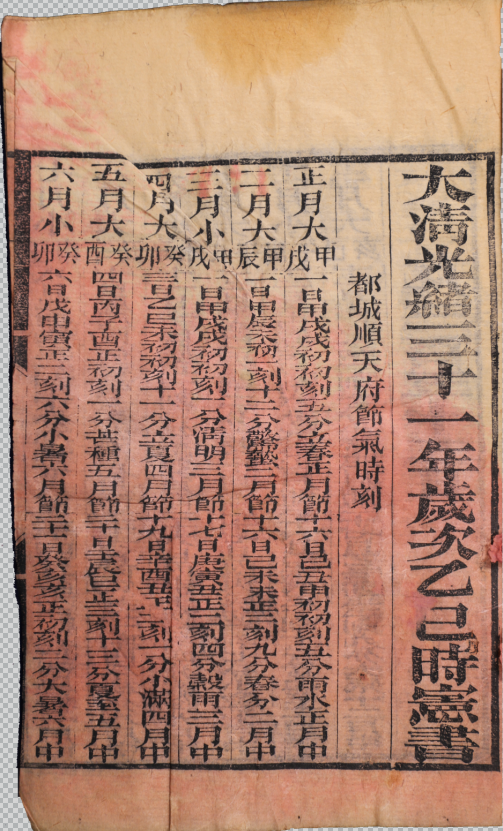 大清光緒三十一年歲次乙巳時憲書
都城順天府節氣時刻
正月大 甲戌 一日甲戌戌初初刻五分立春正月節十六日己丑申初初刻五分雨水正月中
二月大 甲辰 一日甲辰未初二刻十二分驚蟄二月節十六日己未未正三刻九分春分二月中
三月小 甲戌 一日甲戌戌初初刻 分清明三月節十七日庚寅丑正三刻四分穀雨三月中
四月大 癸卯 三日乙巳未初初刻十一分立夏四月節十九日辛酉丑正二刻一分小滿四月中
五月大 癸酉 四日丙子酉正初刻一分芒種五月節二十日壬辰巳正三刻十三分夏至五月中
六月小 癸卯 六日戊申寅正二刻六分小暑六月節二十一日癸亥亥正初刻二分大暑六月中